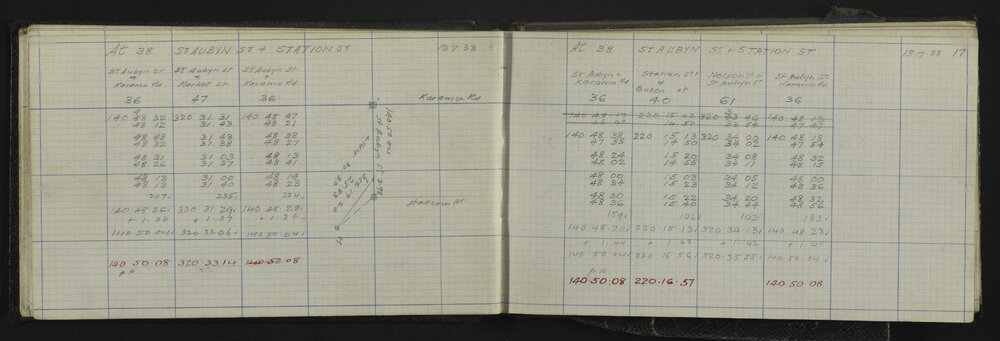 At 38 St Aubyn St + Station St 13.7.33
St Aubyn St + Karamu Rd
St Aubyn St + Market St
St Aubyn St + Karamu Rd
36 47 36
140 48 32 320 31 31 140 48 47
48 12 31 43 48 21
48 48 31 43 48 38
48 32 31 38 48 27
48 31 31 03 48 13
48 26 31 37 48 41
48 13 31 00 48 14
48 13 31 40 48 23
207 235 224
140 48 26 320 31 29 140 48 28
+ 1.38 + 1.37 + 1.36
140 50 04 320 33.06 140 50 04
140.50 08 320.33.14 140.50 08
p 16
Karamu Rd
St Aubyn St
Station St
At 38 St Aubyn St + Station St 13-7-33 17
St Aubyn + Karamu Rd
Station St + Queen St
Nelson St + St Aubyn St
St Aubyn St Karamu Rd
36 40 61 36
140 48 19 220 15 02 320 33 46 140 48 13
48 42 14 50 33 54 47 47
140 48 38 220 15 13 320 34 00 140 48 18
47 55 14 50 34 02 47 54
48 24 15 20 34 08 48 32
48 02 14 55 34 11 48 15
48 00 15 03 34 05 48 00
48 34 15 23 34 12 48 36
48 30 15 22 34 20 48 32
48 36 15 40 34 44 48 56
159 106 102 183
140 48.20 220 15.13 320 34.13 140 48 23
+ 1.44 + 1.43 + 1.42 + 1.41
140 50 04 220 16 56 320 35 55 140 50.04
p 16
140.50.08 220.16.57 140 50 08